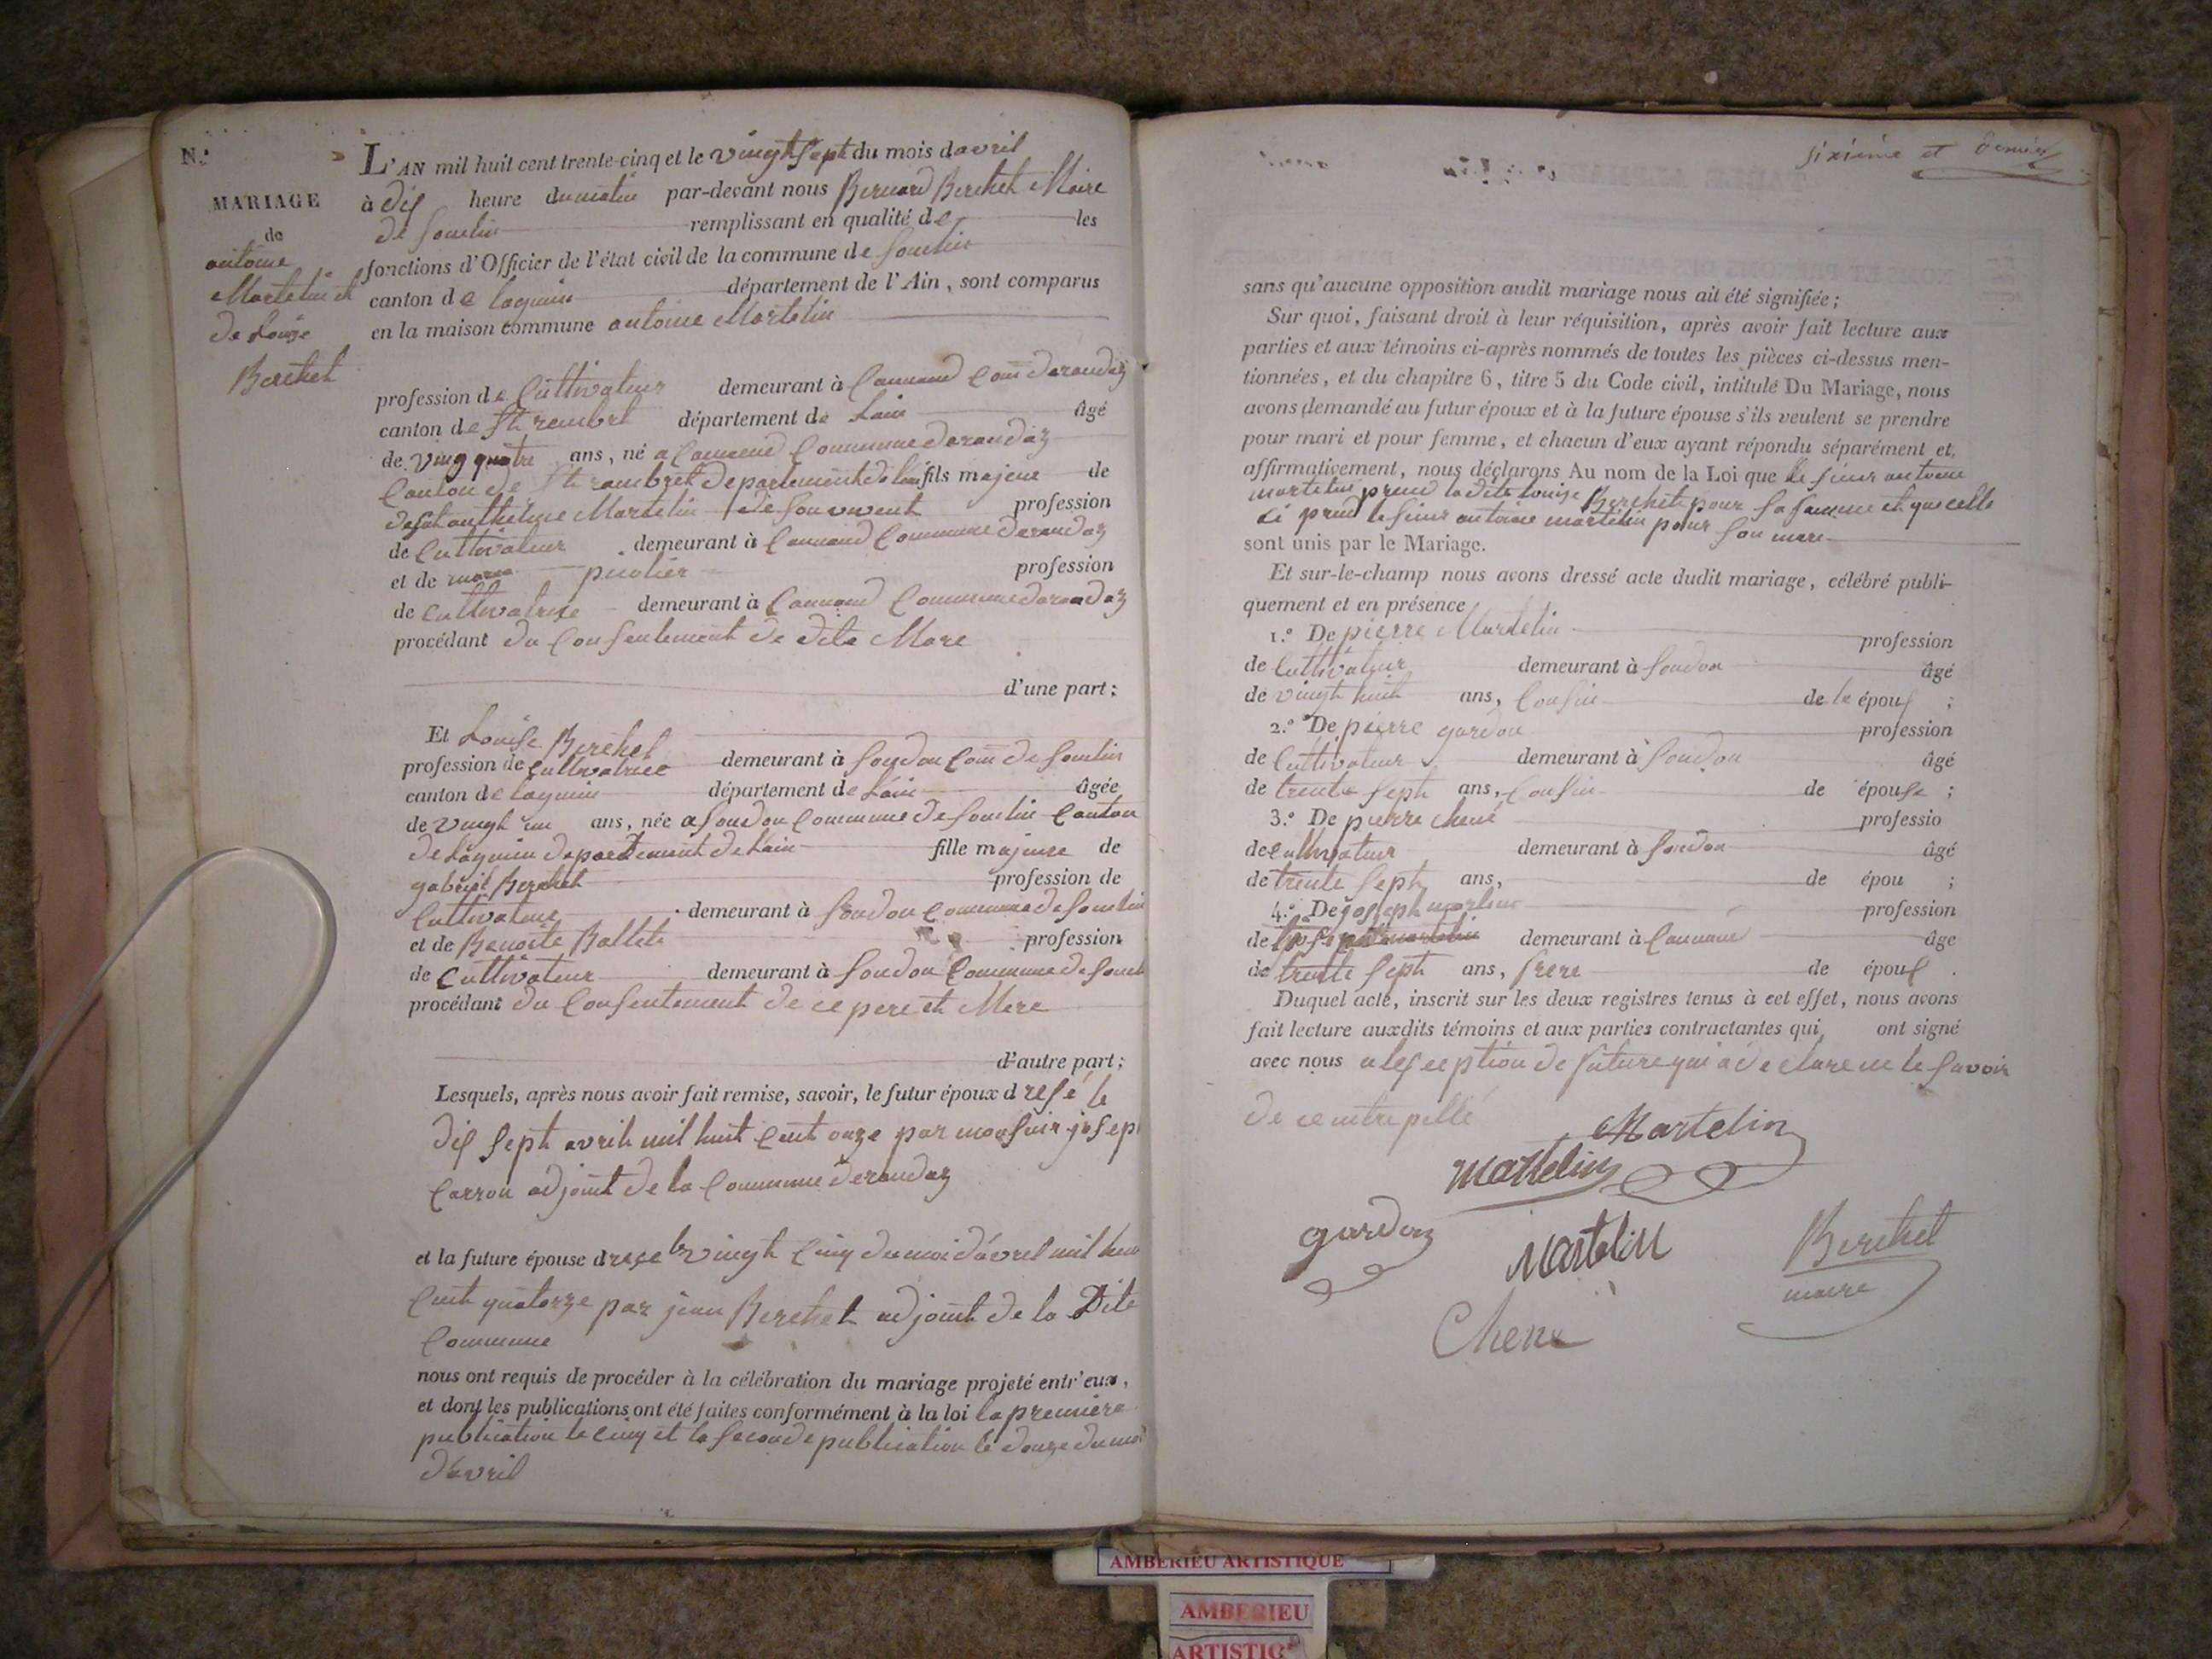 N.
MARIAGE
de
antoine
Martelin et
de Louise
Berthet
L'AN mil huit cent trente-cinq et le vingt sept du mois davril
à dix heure du matin par-devant nous Bernard Berthet Maire
de souclin remplissant en qualité de les
fonctions d'Officier de l'état civil de la commune de souclin
canton de lagnieu département de l'Ain, sont comparus
en la maison commune antoine Martelin
profession de Cultivateur demeurant à Com darandaz
canton de St rembert département de Lain âgé
de ving quatre ans, né a Commune darandaz
Canton de St rambret departement de lain fils majeur de
defut anthelme Martelin de son vivent profession
de Cultivateur demeurant à Commune darandaz
et de marie profession
de cultivatrise demeurant à Commune darandaz
procédant du Consentement de dite Mere
d'une part;
Et Louise Berthet
profession de cultivatrice demeurant à soudon Com de souclin
canton de lagnieu département de Lain âgée
de vingt un ans, née a soudon Commune de souclin Canton
de Lagnieu departement de Lain fille majeure de
gabriel Berthet profession de
Cultivateur demeurant à soudon Commune de souclin
et de Benoite Ballet profession
de Cultivateur demeurant à soudon Commune de soucl
procédant du Consentement de ce pere et Mere
d'autre part;
Lesquels, après nous avoir fait remise, savoir, le futur époux d resé le
dix sept avril mil huit Cent onze par monsuir josep
Carron adjoint de la Commune derandaz
et la future épouse d resçe le vingt Cinq du moi d'avrel mil hui
Cent quatorze par jean Berthet adjoint de la Dite
Commune
nous ont requis de procéder à la célébration du mariage projeté entr'eux,
et dont les publications ont été faites conformément à la loi la premiere
publication le cinq et la seconde publication le douze du moi
d'avril
sixième et dernier
sans qu'aucune opposition audit mariage nous ait été signifiée;
Sur quoi, faisant droit à leur réquisition, après avoir fait lecture aux
parties et aux témoins ci-après nommés de toutes les pièces ci-dessus men-
tionnées, et du chapitre 6, titre 5 du Code civil, intitulé Du Mariage, nous
avons demandé au futur époux et à la future épouse s'ils veulent se prendre
pour mari et pour femme, et chacun d'eux ayant répondu séparément et
affirmativement, nous déclarons Au nom de la Loi que le sieur antoine
martelin prend la dite Louise Berthet pour sa famme et que celle
ci prend le sieur antoine martelin pour son mari
sont unis par le Mariage.
Et sur-le-champ nous avons dressé acte dudit mariage, célébré publi-
quement et en présence
1.º De pierre Martelin profession
de Cultivateur demeurant à soudon âgé
de vingt huit ans, Cousin de le époux ;
2.º De pierre gardon profession
de Cultivateur demeurant à soudon âgé
de trente sept ans, Cousin de épouse ;
3.º De pierre chené professio
de cultivateur demeurant à soudon âgé
de trente sept ans, de épou ;
4.º De joseph profession
de demeurant à âge
de trente sept ans, frere de époux .
Duquel acte, inscrit sur les deux registres tenus à cet effet, nous avons
fait lecture auxdits témoins et aux parties contractantes qui ont signé
avec nous a lexception de future qui a declare ne le savoir
de ce
Martelin
Martelin
gardon
Martelin
Berthet
maire
Chene
AMBERIEU ARTISTIQUE
AMBERIEU
ARTISTIQ